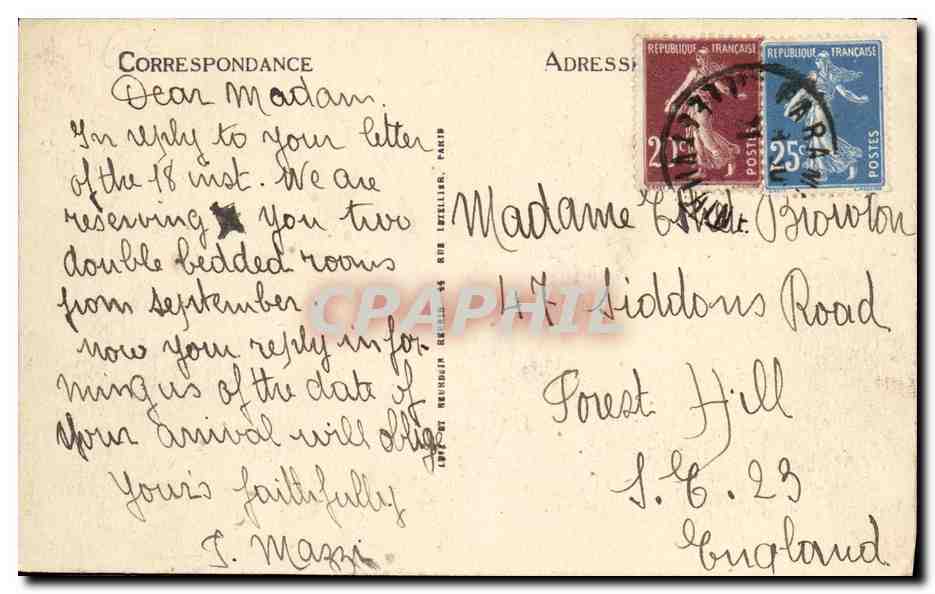 CORRESPONDANCE
Dear Madam.
In reply to your letter
of the 18 inst. We are
reserving you two
double bedded rooms
from september.
Now your reply infor-
ming us of the date of
your arrival will oblige
Yours faithfully
J. Mazzi
LÉVY ET NEURDEIN RÉUNIS 44 RUE LETELLIER, PARIS
ADRESSE
RÉPUBLIQUE FRANÇAISE
20c
POSTES
RÉPUBLIQUE FRANÇAISE
25c
POSTES
Madame Browton
47 Siddons Road
Forest Hill
S.E. 23
England
CPAPHIL